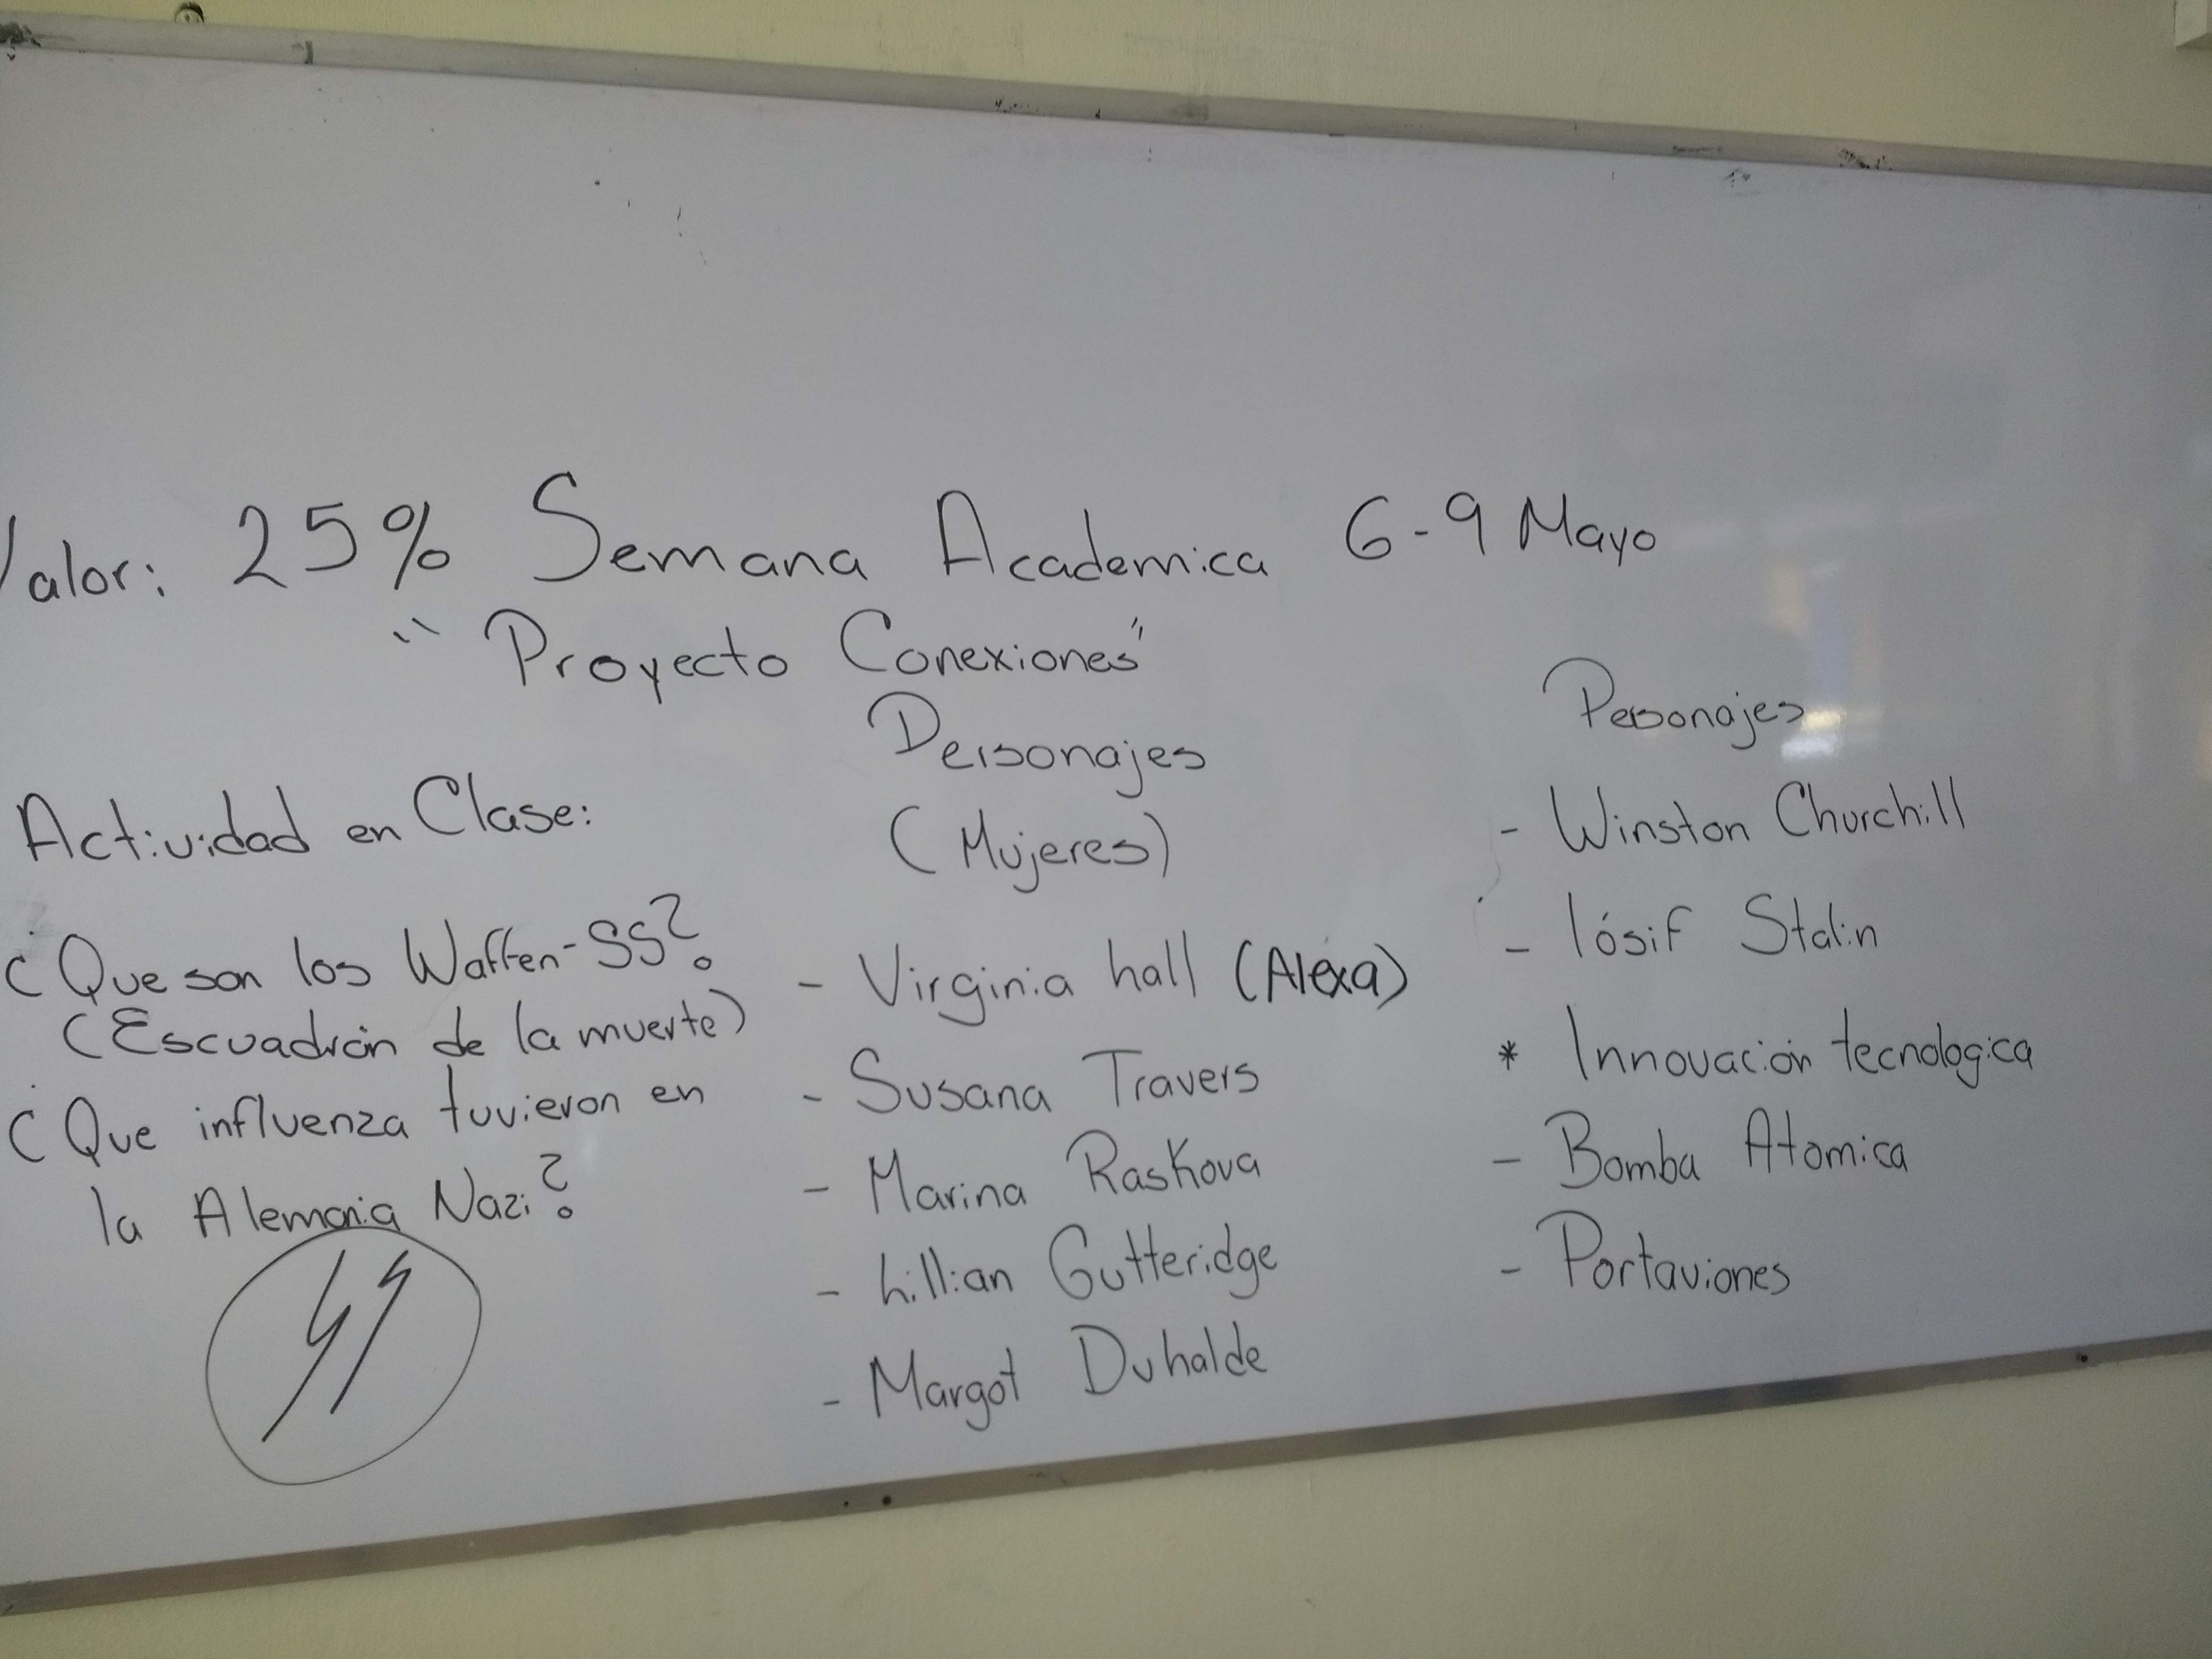 Valor: 25% Semana Academica 6-9 Mayo
"Proyecto Conexiones"
Actividad en Clase:
¿Que son los Waffen-SS?
(Escuadrón de la muerte)
¿Que influenza tuvieron en
la Alemania Nazi?
Personajes
(Mujeres)
- Virginia hall (Alexa)
- Susana Travers
- Marina Raskova
- Lillian Gutteridge
- Margot Duhalde
Personajes
- Winston Churchill
- Iósif Stalin
* Innovación tecnologica
- Bomba Atomica
- Portaviones